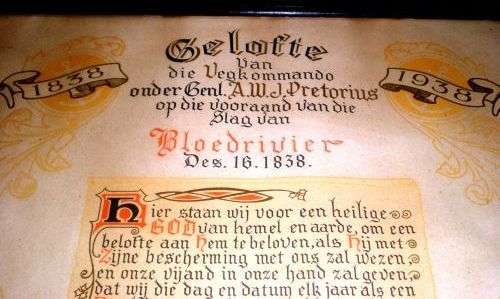 Gelofte
van
die Vegkommando
onder Genl. A.W.J. Pretorius
op die vooraand van die
Slag van
Bloedrivier
Des. 16. 1838.
1838
1938
Hier staan wij voor een heilige
GOD van hemel en aarde, om een
belofte aan Hem te beloven, als Hij met
Zijne bescherming met ons zal wezen
en onze vijand in onze hand zal geven,
dat wij die dag en datum elk jaar als een